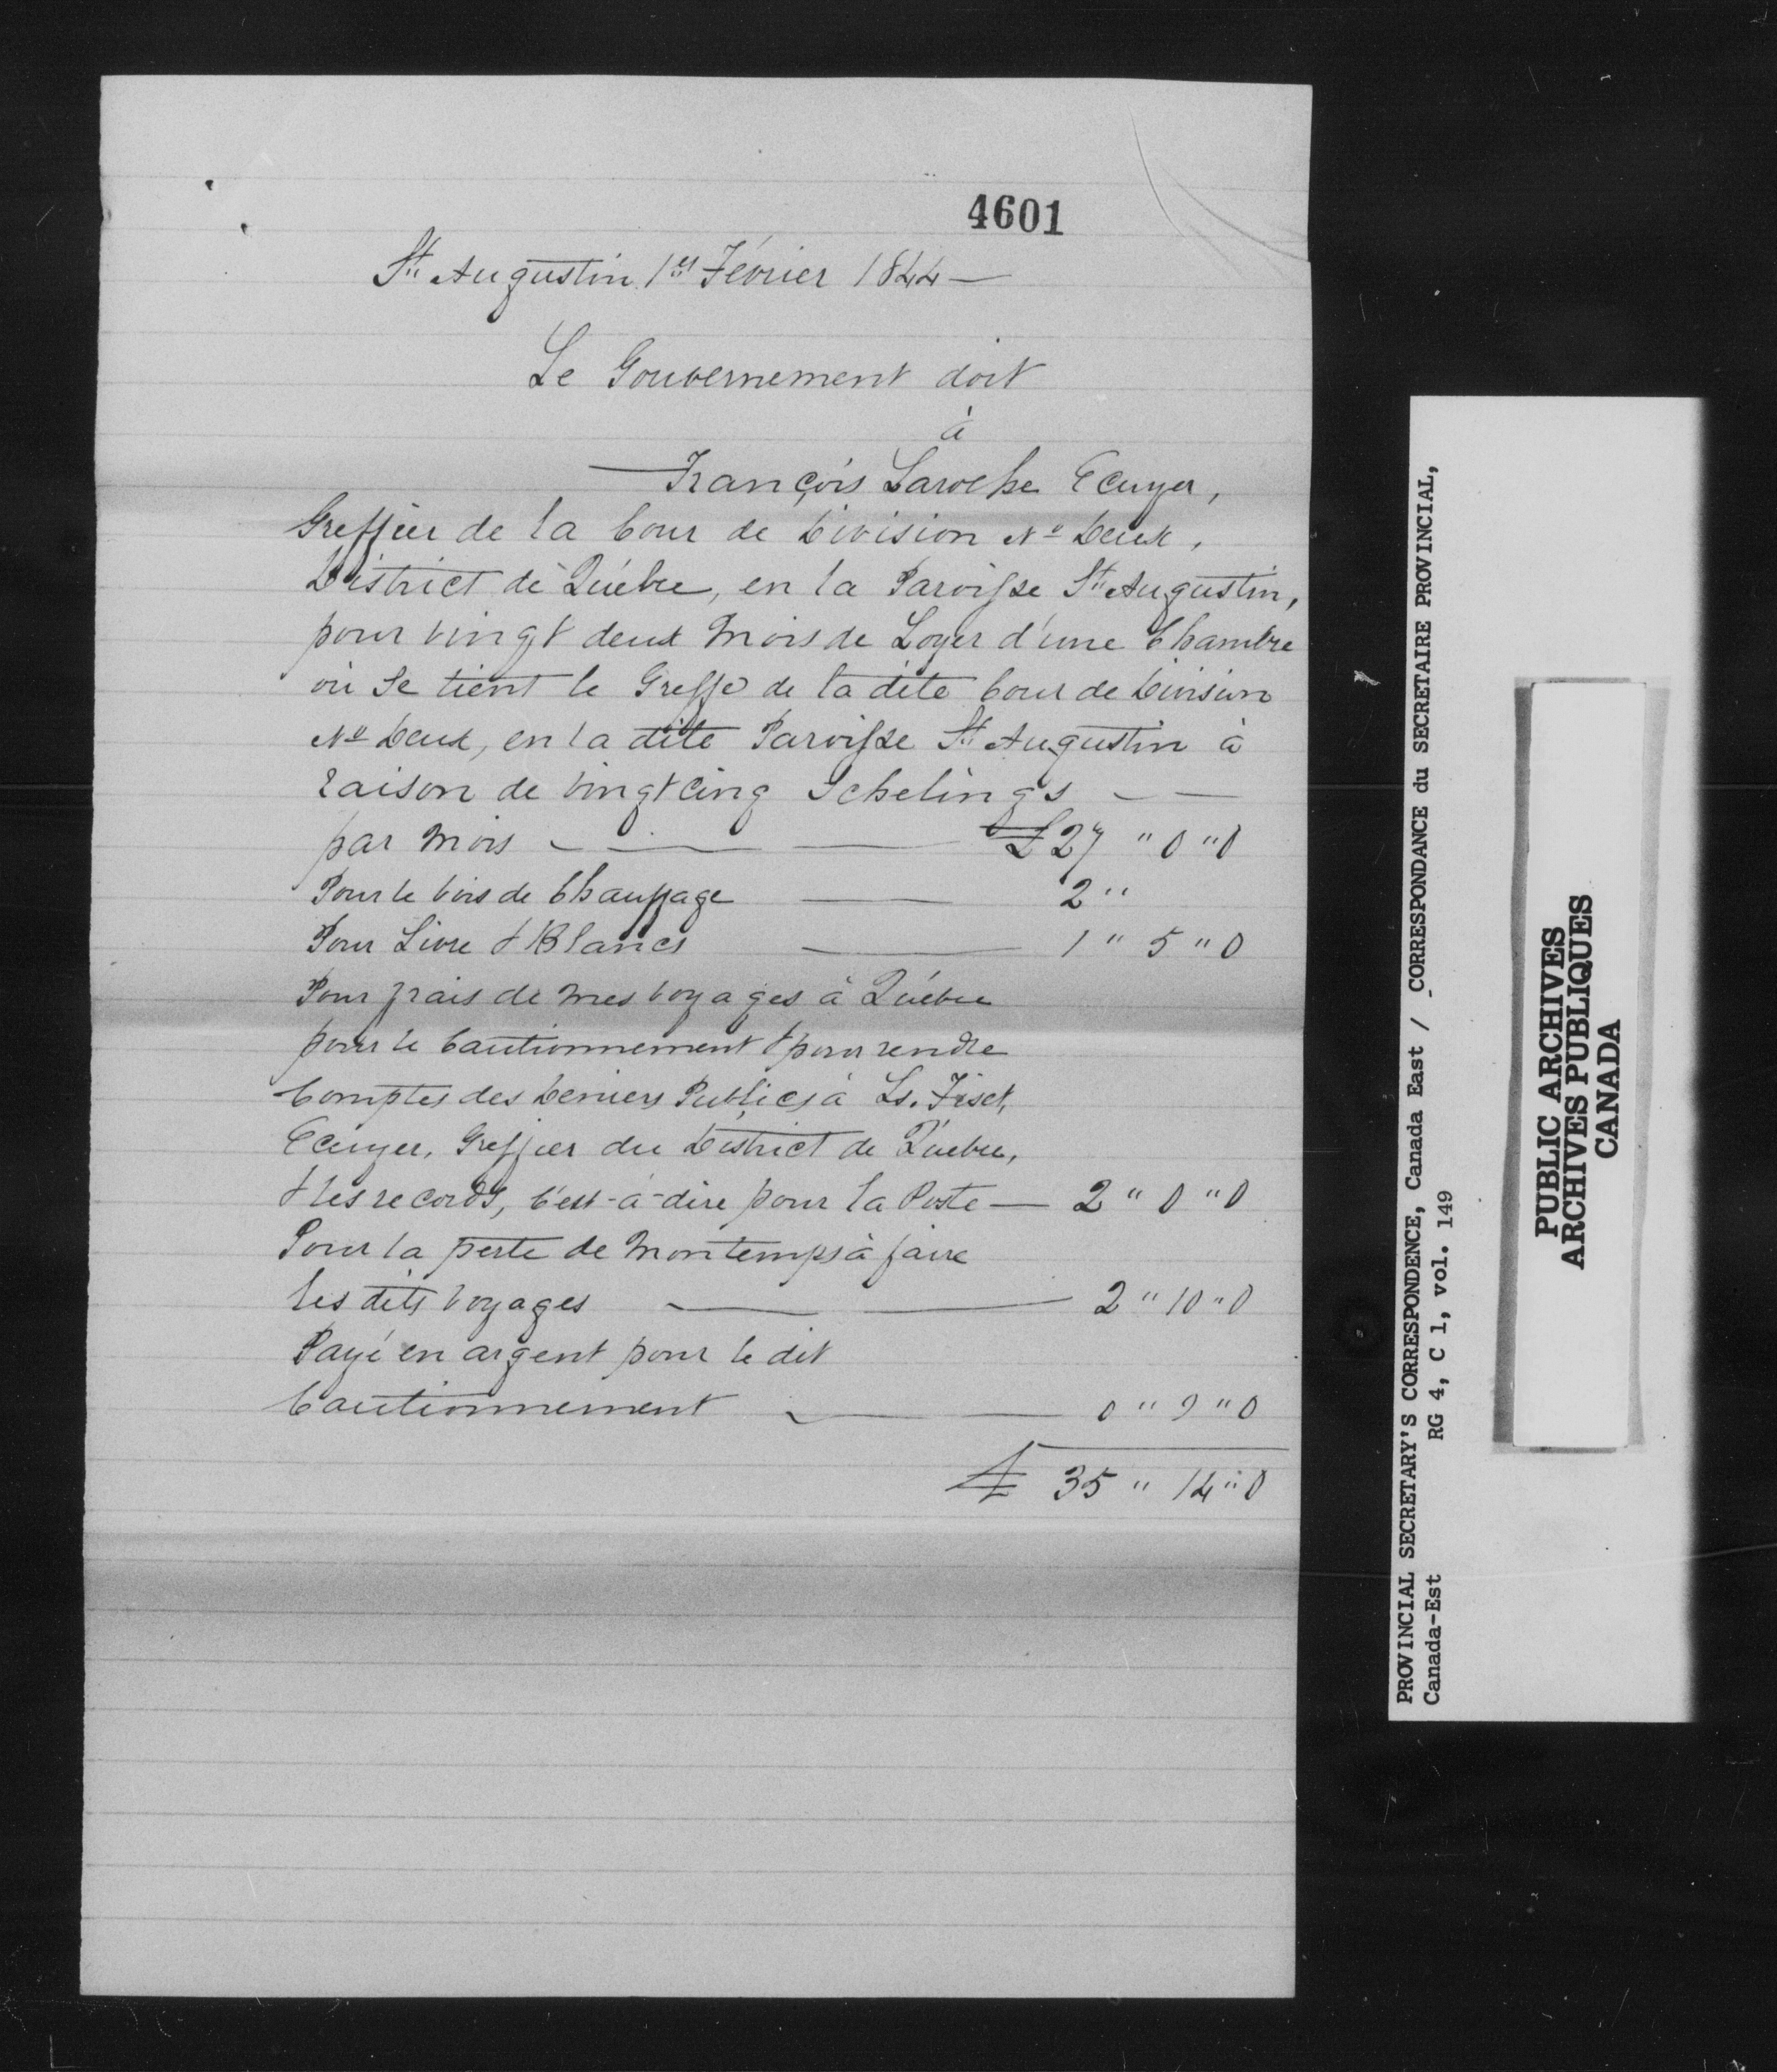 4601
St. Augustin 1er Février 1844 —
Le Gouvernement doit
à
— François Laroche Ecuyer,
Greffier de la Cour de Division No Deux,
District de Québec, en la Paroisse St. Augustin,
pour vingt deux mois de Loyer d'une Chambre
où Se tient le Greffe de la dite Cour de Division
No Deux, en la dite Paroisse St. Augustin à
raison de vingt cinq Schelings — —
par mois — — — £27 " 0 " 0
Pour le bois de Chauffage — 2 "
Pour Livre & Blancs — 1 " 5 " 0
Pour frais de mes voyages à Québec
pour le Cautionnement & pour rendre
Comptes des Deniers Publics à Ls. Fiset,
Ecuyer, Greffier du District de Québec,
& les records, C'est-à-dire pour la Poste — 2 " 0 " 0
Pour la perte de mon temps à faire
les dits voyages — — 2 " 10 " 0
Payé en argent pour le dit
Cautionnement — — 0 " 9 " 0
£ 35 " 14 " 0
PROVINCIAL SECRETARY'S CORRESPONDENCE, Canada East / CORRESPONDANCE du SECRETAIRE PROVINCIAL,
Canada-Est RG 4, C 1, vol. 149
PUBLIC ARCHIVES
ARCHIVES PUBLIQUES
CANADA